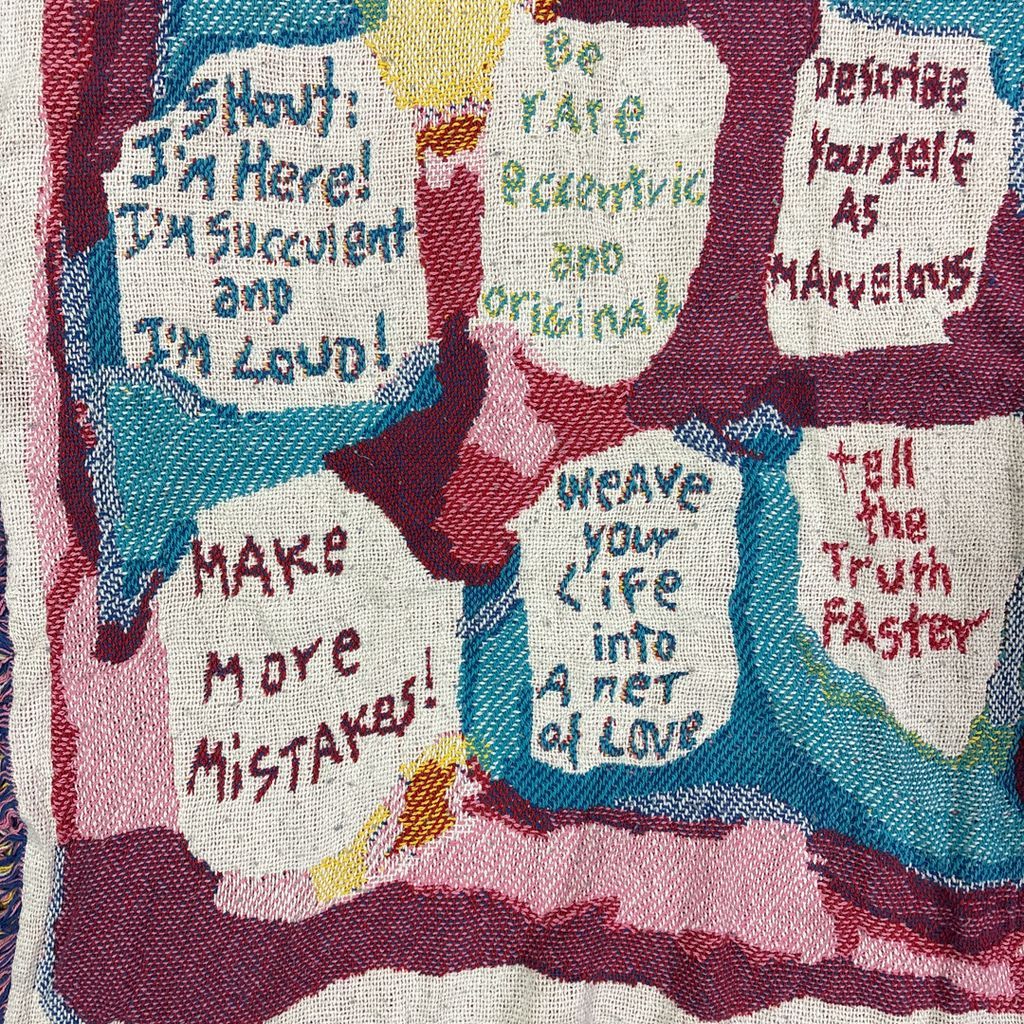 SHout:
I'm Here!
I'M Succulent
and
I'M LOUD!
Be
rAre
eccentric
and
original
Describe
Yourself
As
MArvelous
MAKe
More
MiSTAKes!
WeAVe
your
Life
into
A net
of LOVe
tell
the
Truth
FAster